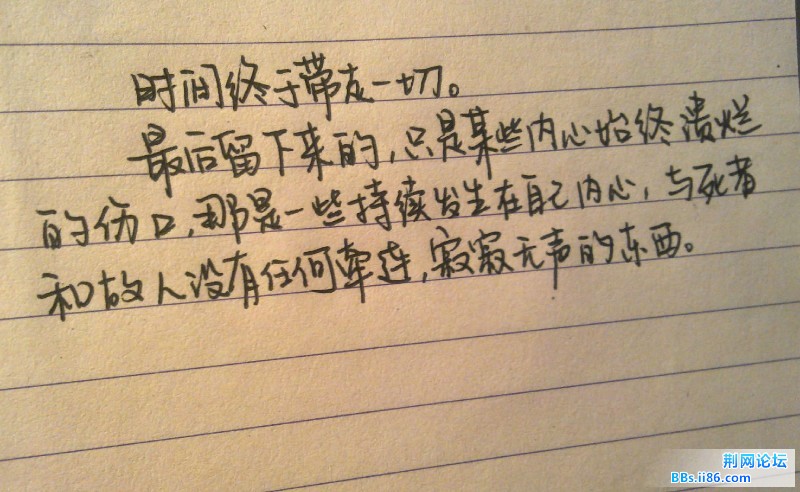 时间终于带走一切。
最后留下来的,只是某些内心始终溃烂
的伤口,那是一些持续发生在自己内心,与死者
和故人没有任何牵连,寂寂无声的东西。
荆网论坛
BBs.ii86.com